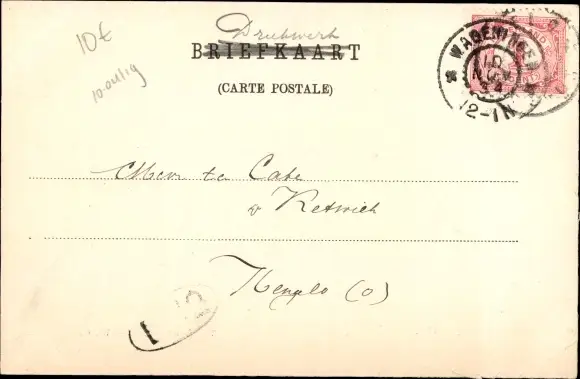 10€
Drukwerk
BRIEFKAART
(CARTE POSTALE)
WAGENINGEN
10
NOV
12-1N
Mevr ten Cate
v Ketwich
Hengelo (O)
1